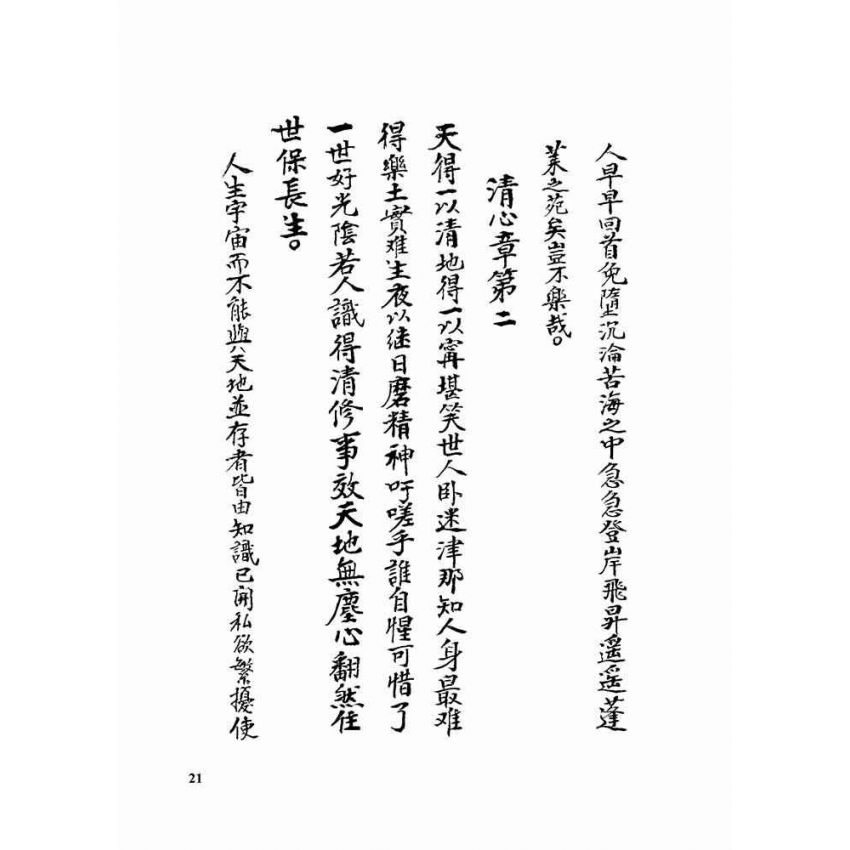 人早早回首免墮沉淪苦海之中急急登岸飛昇遥遥蓬
莱之苑矣豈不樂哉。
清心章第二
天得一以清地得一以寗堪笑世人卧迷津那知人身最难
得樂土實难生夜以继日磨精神吁嗟乎誰自惺可惜了
一世好光陰若人識得清修事效天地無塵心翻然住
世保長生。
人生宇宙而不能與天地並存者皆由知識已開私欲繁擾使
21